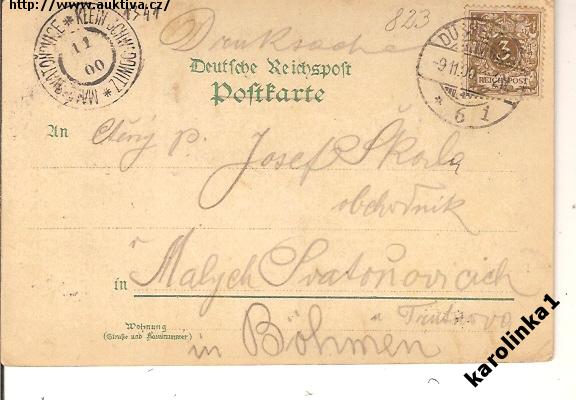 http://www.auktiva.cz/
823
Drucksache
Deutsche Reichspost
Postkarte
KLEIN SCHWADOWITZ * MALÉ SVATOŇOVICE *
11
00
3
REICHSPOST
-9 11 00
* 6 i
An Ctěný p. Josef Škoda
obchodník
v
in Malých Svatoňovicích
u Trutnova
Wohnung
(Straße und Hausnummer)
in Böhmen
karolinka1